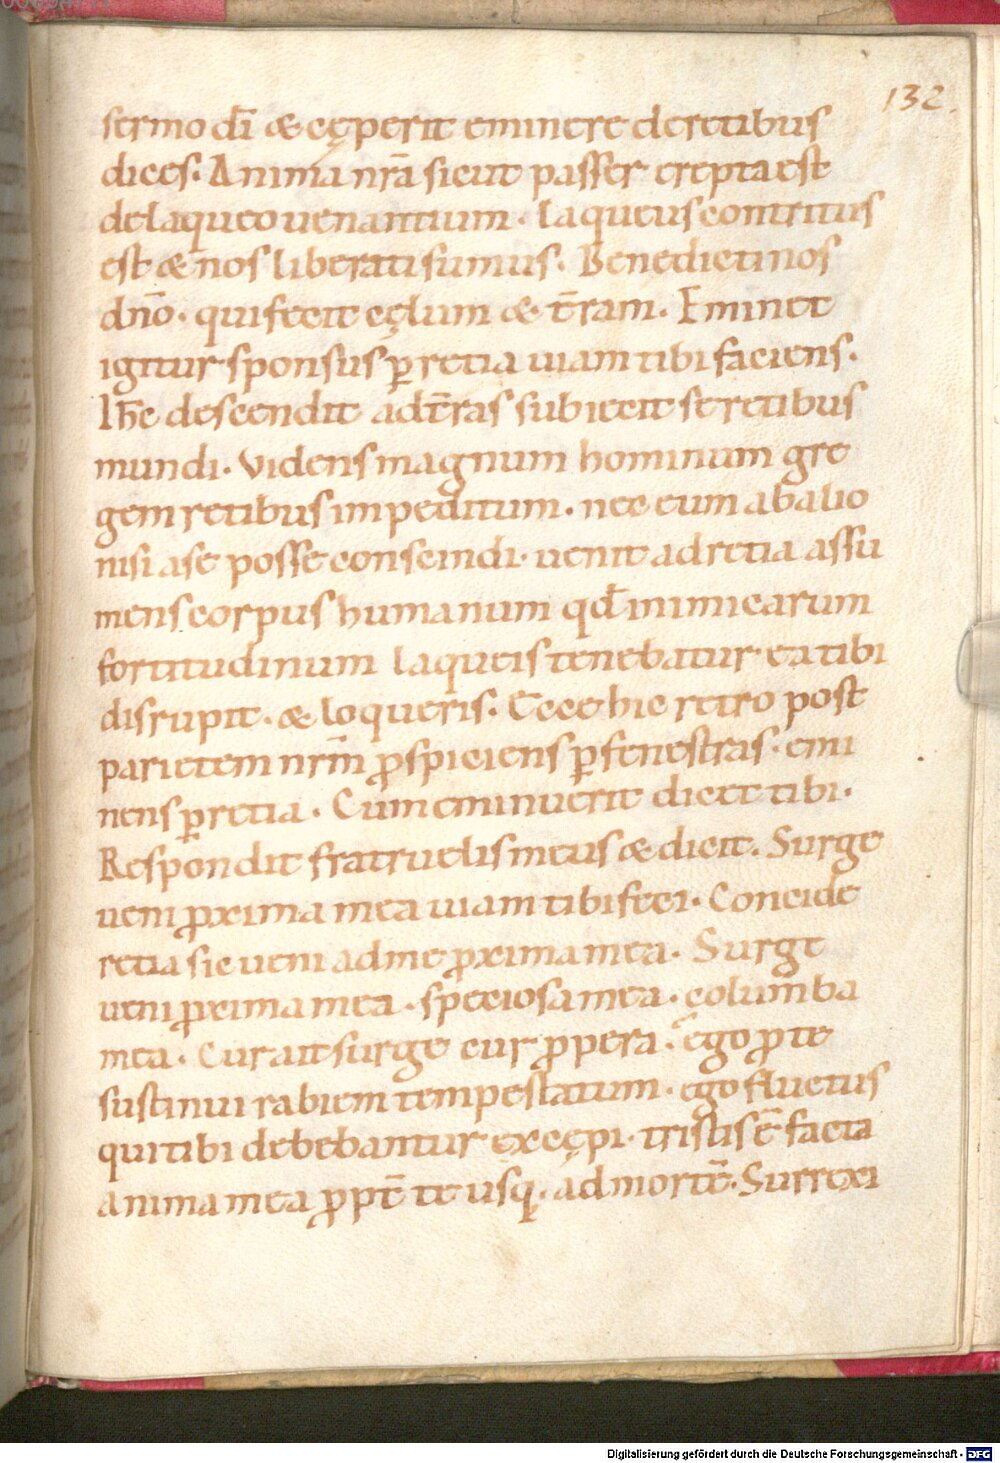 132.
sermo dī & cęperit eminere de retibus
dices. Anima nrā sicut passer erepta est
de laqueo uenantium. laqueus contritus
est & nos liberati sumus. Benedicti nos
dn̄o. qui fecit cęlum & t̄ram. Eminet
igitur sponsus ꝑ retia uiam tibi faciens.
Ih̄c descendit ad t̄ras subiecit se retibus
mundi. Videns magnum hominum gre
gem retibus impeditum. nec eum ab alio
nisi a se posse conscindi. uenit ad retia assu
mens corpus humanum qd̄ inimicarum
fortitudinum laqueis tenebatur ea tibi
disrupit. & loqueris. Ecce hic retro post
parietem nrm̄ ꝓspiciens ꝑ fenestras. emi
nens ꝑ retia. Cum eminuerit dicet tibi.
Respondit fratruelis meus & dicit. Surge
ueni ꝓxima mea uiam tibi feci. Concide
retia sic ueni ad me ꝓxima mea. Surge
ueni ꝓxima mea. speciosa mea. columba
mea. Cur ait surge cur ꝓpera. ego ꝓ te
sustinui rabiem tempestatum. ego fluctus
qui tibi debebantur excępi. tristis ē facta
anima mea ꝓpt̄ te usq;. ad mortē. Surrexi
Digitalisierung gefördert durch die Deutsche Forschungsgemeinschaft - DFG